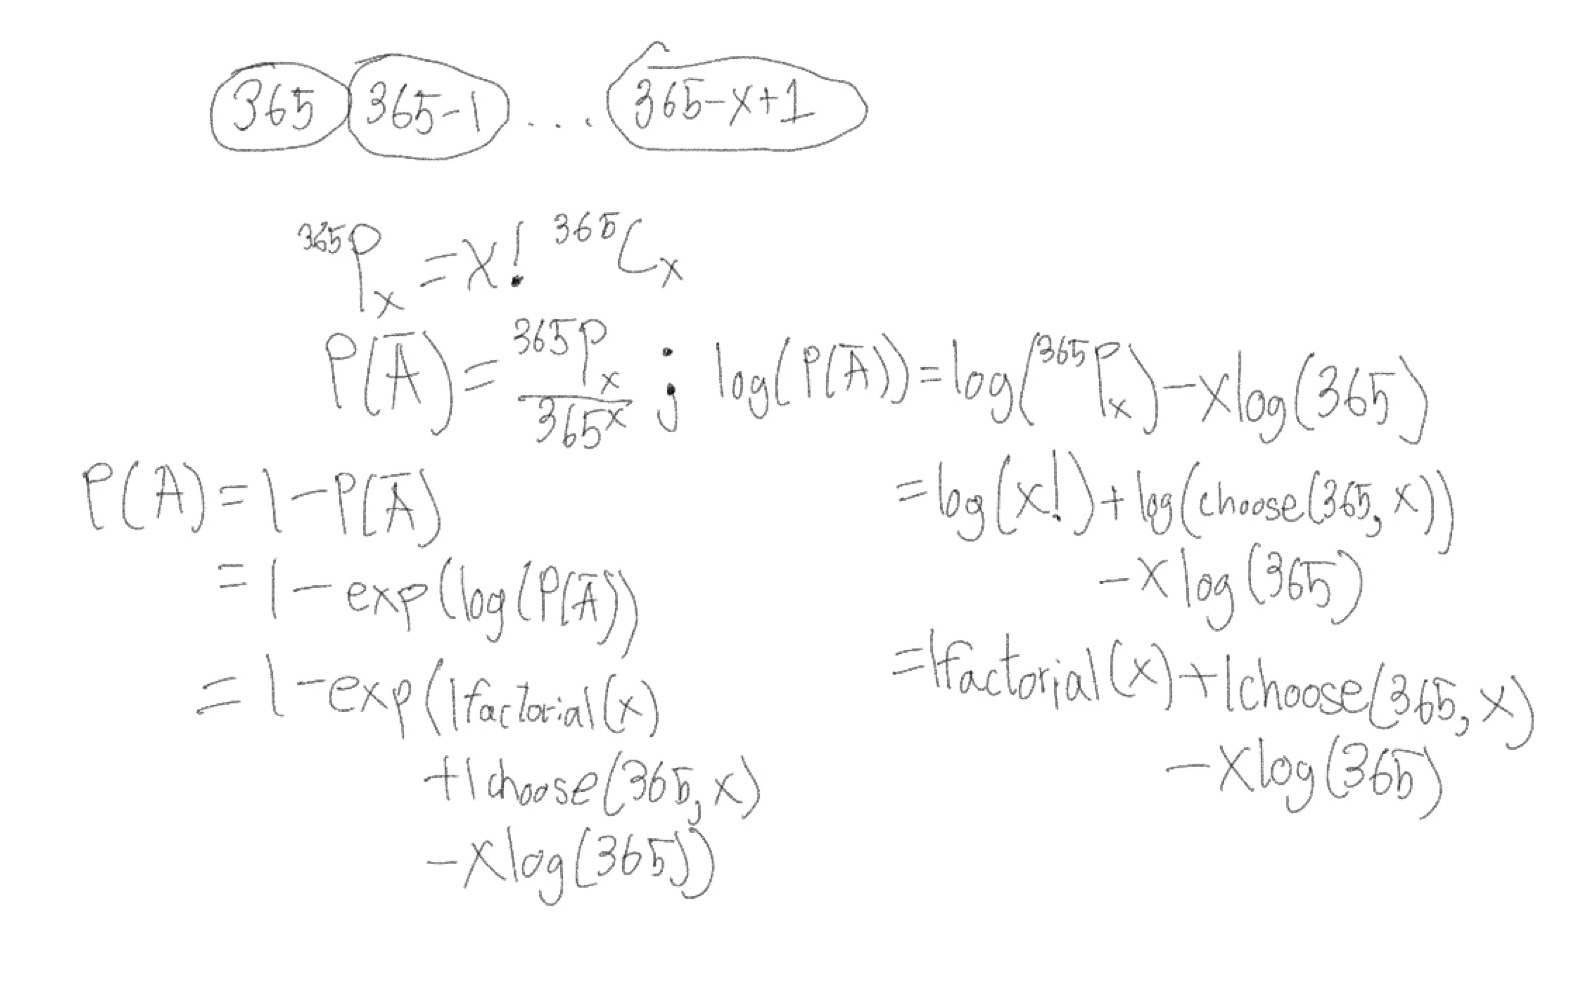 365 365-1 ... 365-x+1
³⁶⁵Pₓ = x! ³⁶⁵Cₓ
P(Ā) = ³⁶⁵Pₓ / 365ˣ ; log(P(Ā)) = log(³⁶⁵Pₓ) - xlog(365)
= log(x!) + log(choose(365, x))
- xlog(365)
= lfactorial(x) + lchoose(365, x)
- xlog(365)
P(A) = 1 - P(Ā)
= 1 - exp(log(P(Ā))
= 1 - exp(lfactorial(x)
+ lchoose(365, x)
- xlog(365))